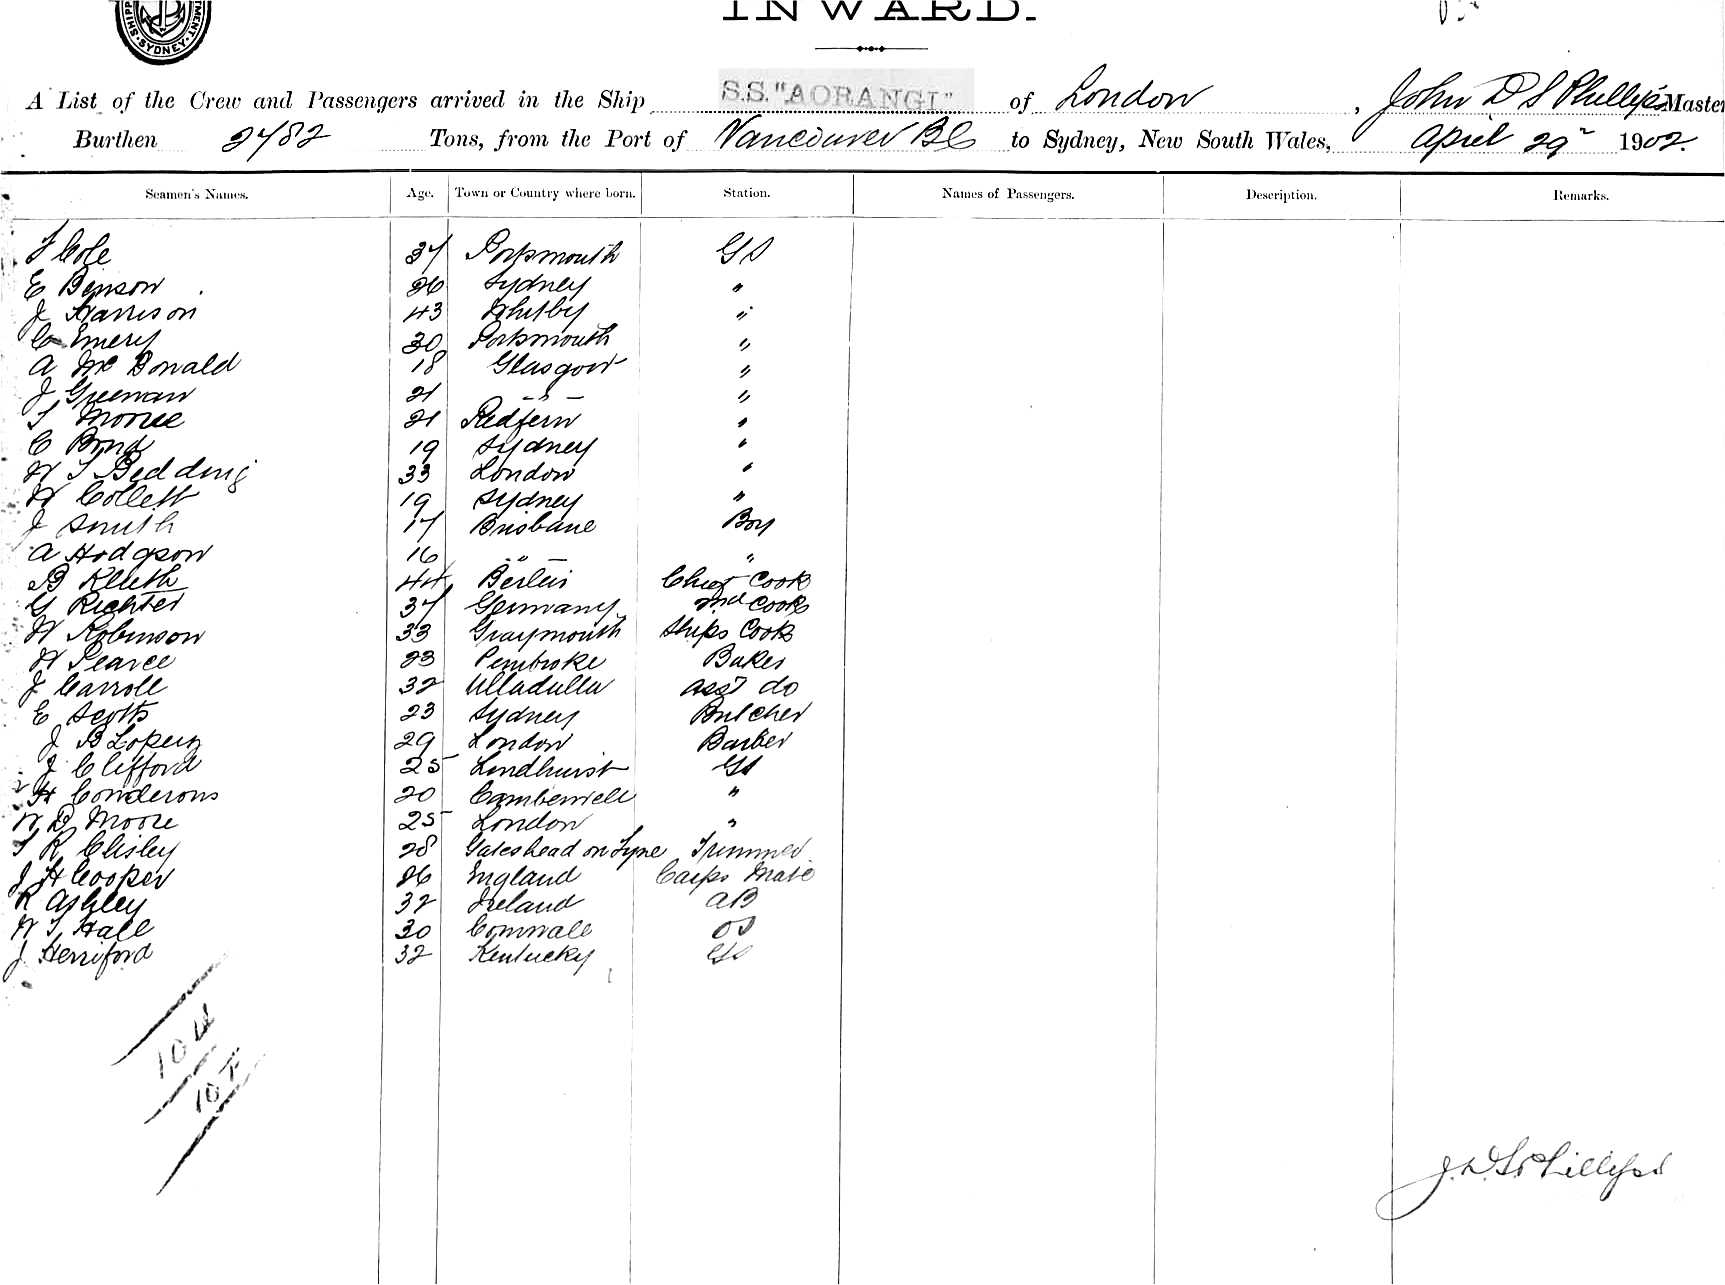 SYDNEY
INWARD.
A List of the Crew and Passengers arrived in the Ship S.S. "AORANGI" of London, John D S Phillips Master
Burthen 2782 Tons, from the Port of Vancouver BC to Sydney, New South Wales, April 29 1902.
Seamen's Names. Age. Town or Country where born. Station. Names of Passengers. Description. Remarks.
Cole 37 Portsmouth GS
E Benson 26 Sydney "
J Harrison 43 Whitby "
C Emery 30 Portsmouth "
A McDonald 18 Glasgow "
J Greenan 21 - " - "
T Moore 21 Redfern "
C Bond 19 Sydney "
W T Bedding 33 London "
W Collett 19 Sydney "
J Smith 17 Brisbane Boy
A Hodgson 16 - " - "
B 44 Berlin Chief Cook
G Richter 37 Germany 2nd Cook
W Robinson 33 Graymouth Ships Cook
W Pearce 23 Pembroke Baker
J Carroll 32 Ulladulla asst do
E Scotts 23 Sydney Butcher
J B 29 London Barber
J Clifford 25 Lindhurst GS
H Conderons 20 Camberwell "
W D Moore 25 London "
T R Chisley 28 Gateshead on Tyne Trimmer
J H Cooper 26 England Carps Mate
R Ashley 32 Ireland AB
W T Hall 30 Cornwall OS
J Herriford 32 Kentucky GS
10
10
J. D. S. Phillips